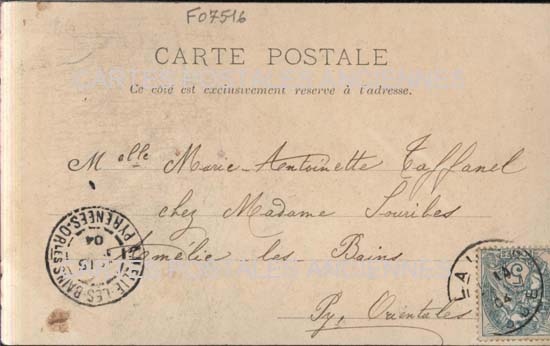 F07516
CARTE POSTALE
CARTES POSTALES ANCIENNES
Ce côté est exclusivement réservé à l'adresse.
Melle Marie-Antoinette Taffanel
chez Madame Souribes
Amélie les Bains
POSTALES ANCIENNES
Py. Orientales
AMELIE-LES-BAINS
PYRÉNÉES-ORLES
15
04
LA
04